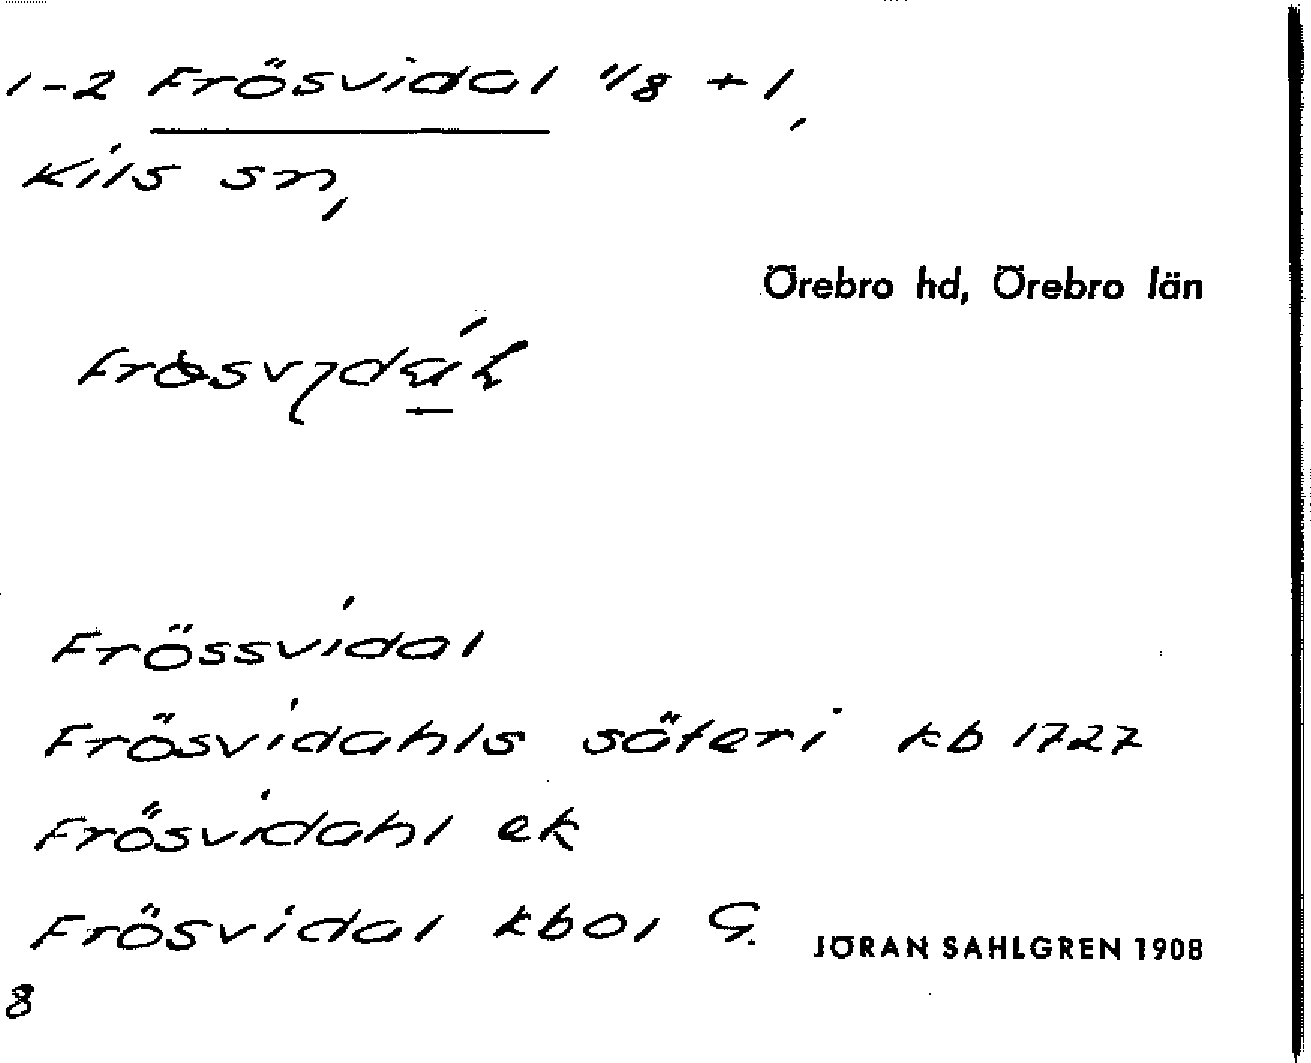 1-2 Frösvidal 1/8 + 1,
Kils sn,
Örebro hd, Örebro län
Frössvidal
Frösvidahls säteri kb 1727
Frösvidahl ek
Frösvidal kb01 G.
JÖRAN SAHLGREN 1908
8